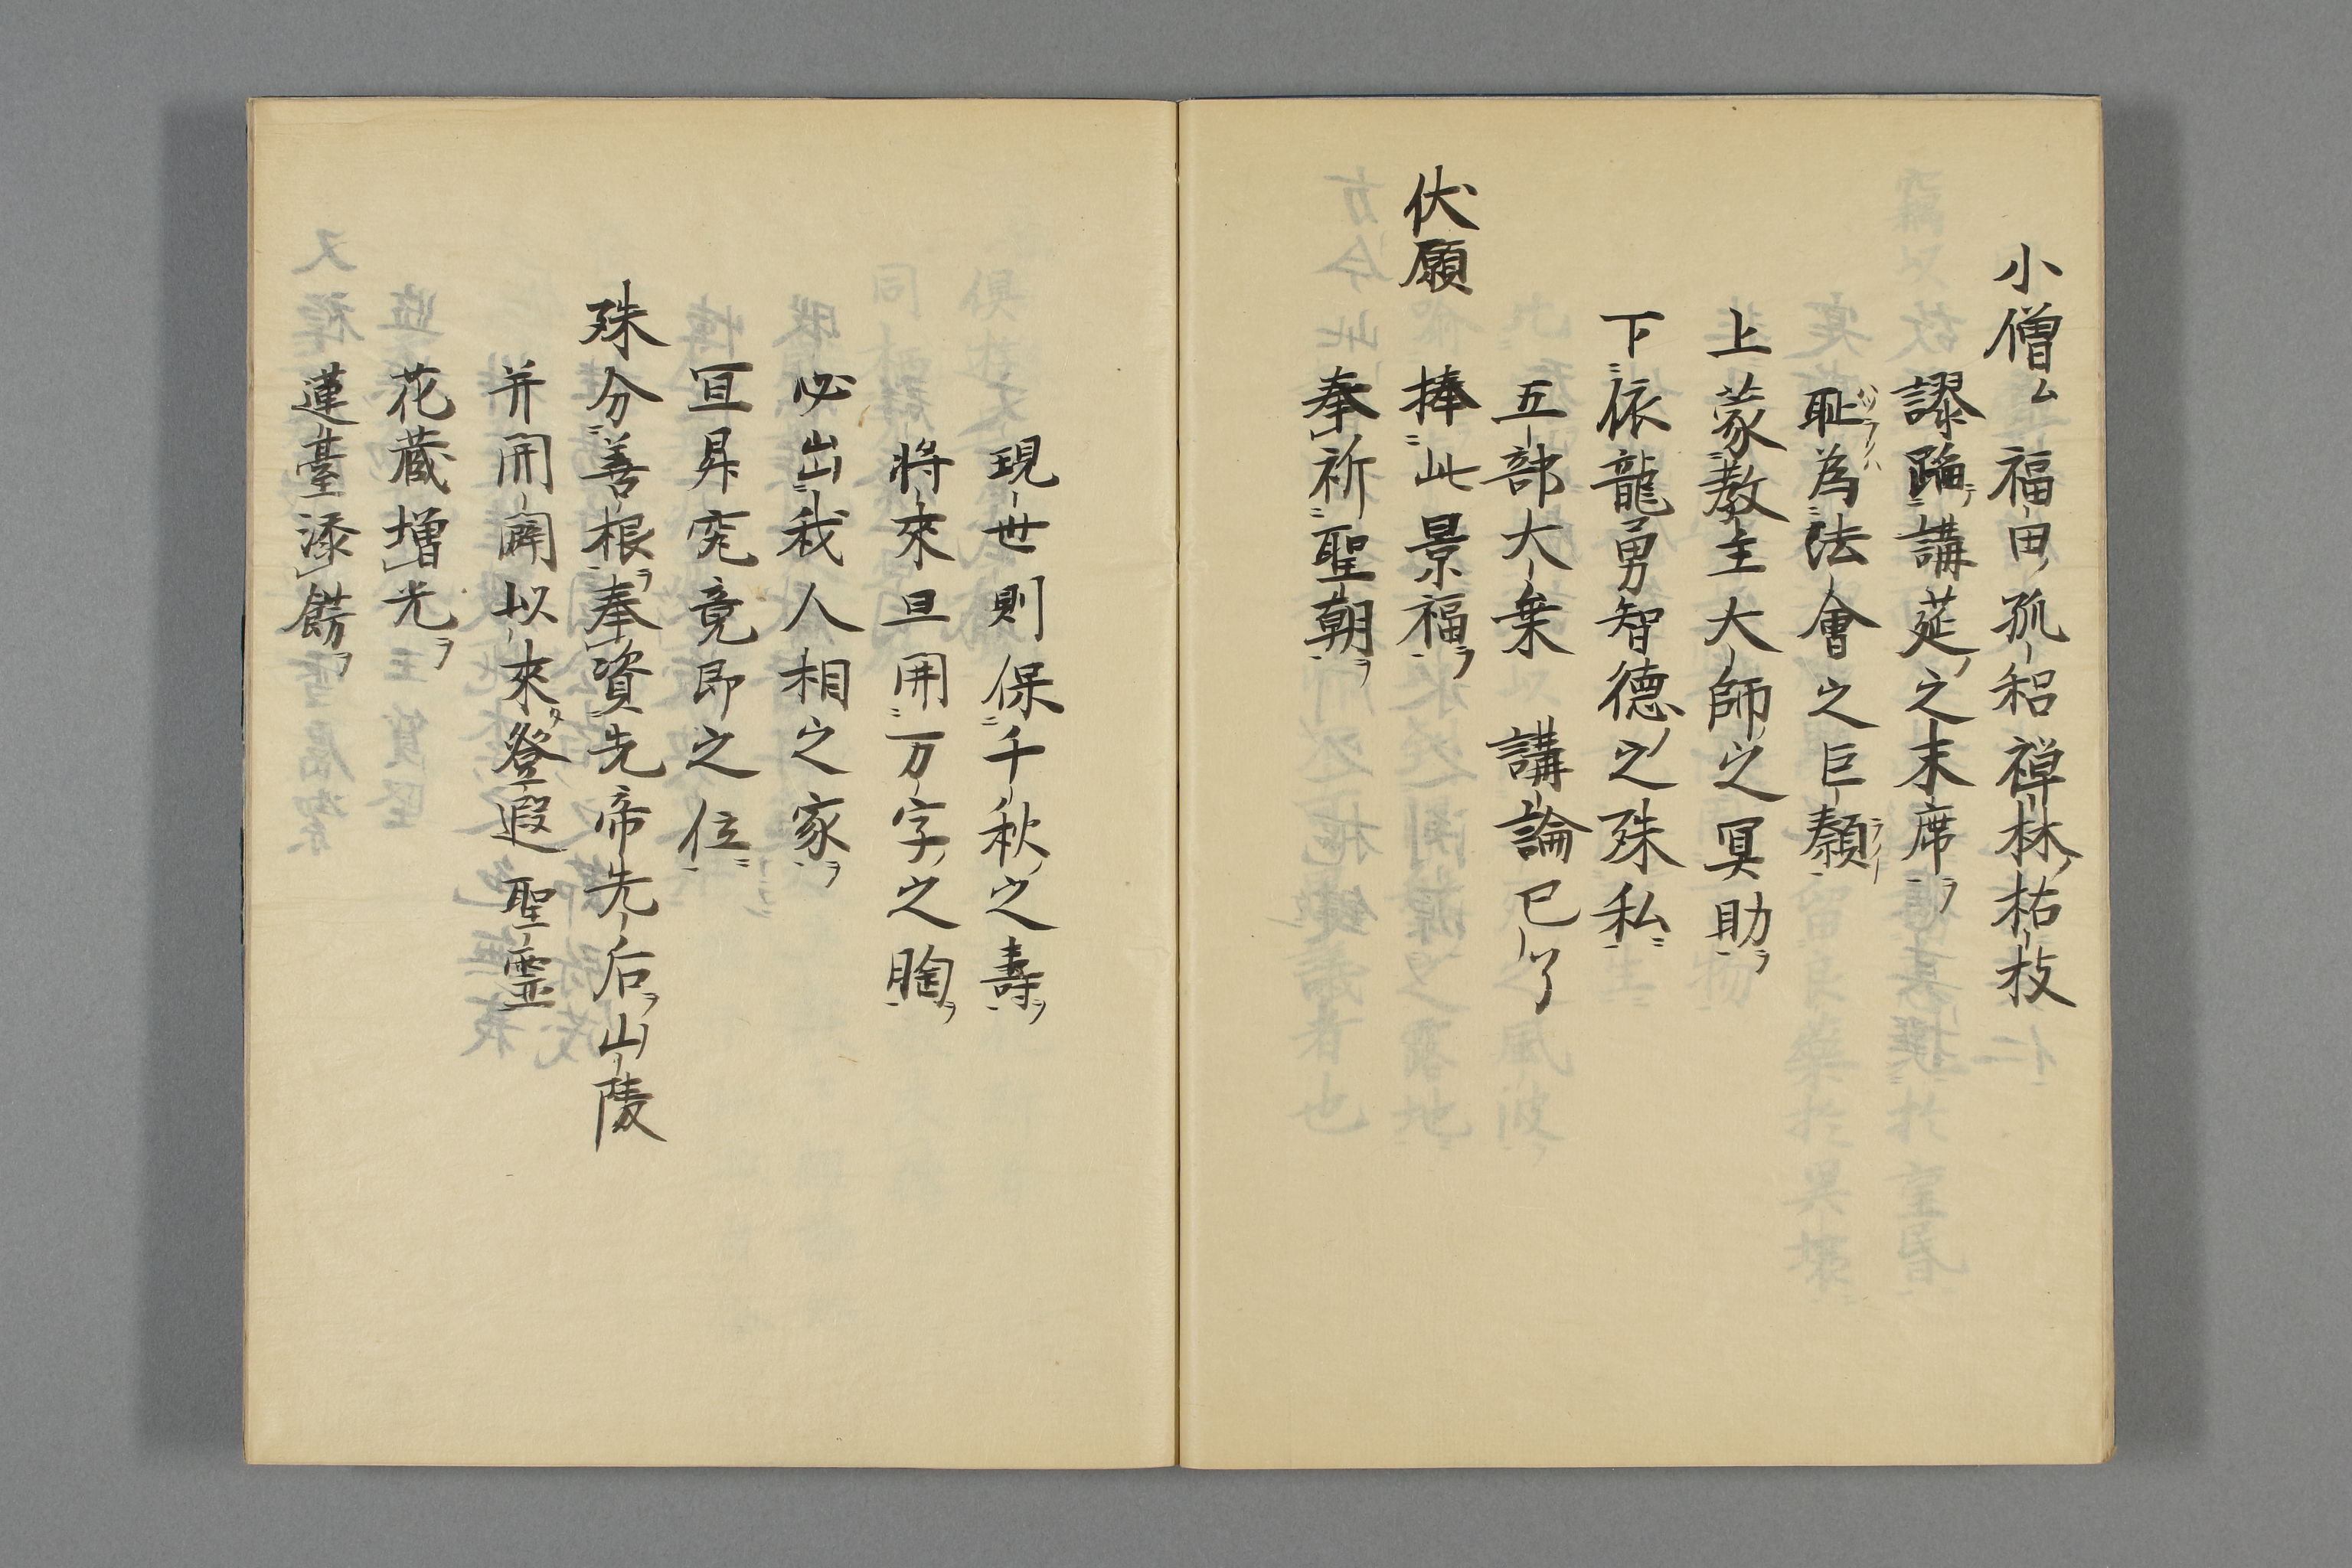 小僧ム福田孤稻禅林枯枝
謬蹈講莚之末席ヲ
耻為法會之巨
上蒙教主大師之冥助ヲ
下依龍勇智德之殊私ニ
五部大乗　講論已了
伏願　捧此景福ヲ
奉祈聖朝ヲ
現世則保千秋之壽ヲ
將來旦開万字之胸ヲ
必出我人相之家ヲ
宜昇究竟即之位ニ
殊分善根ヲ奉資先帝先后ヲ山陵
并開闢以來登遐　聖霊
花蔵増光ヲ
蓮臺添餝ヲ